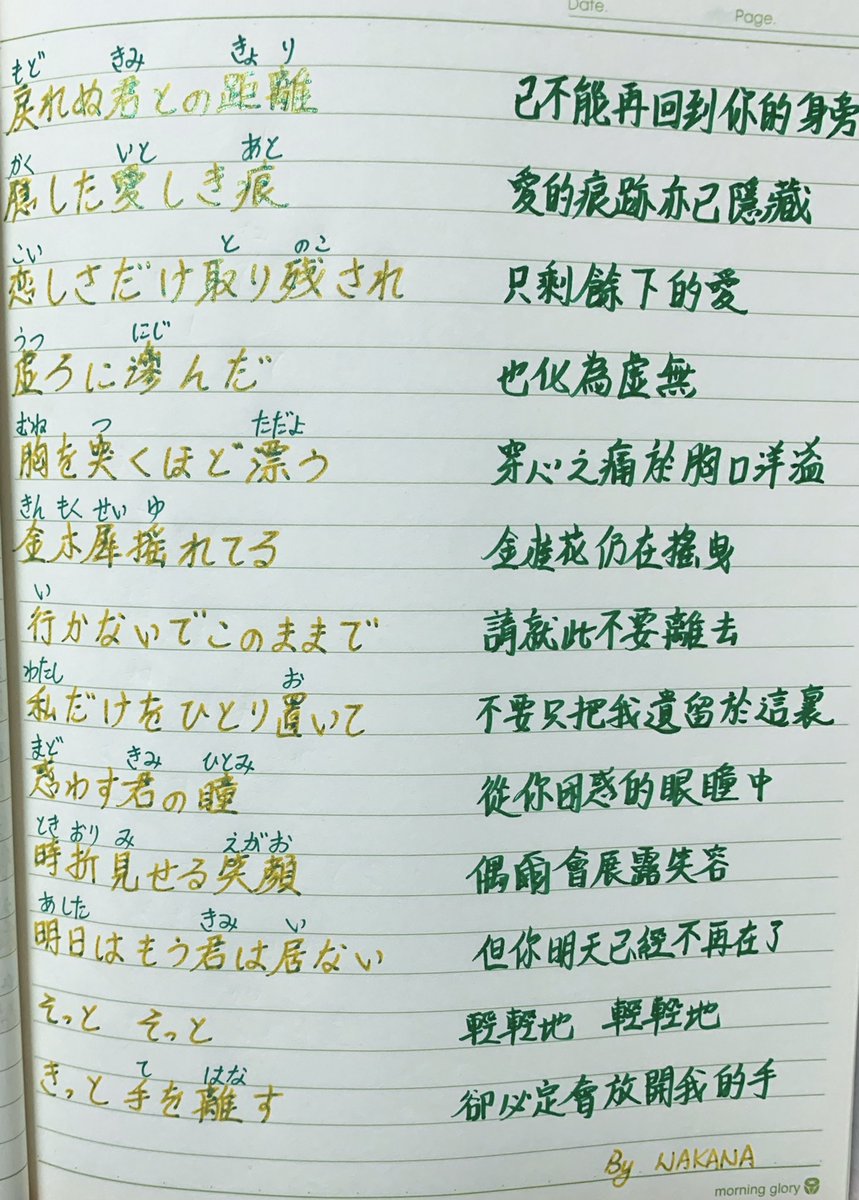 Date.
Page.
もど きみ きょ り
戻れぬ君との距離 已不能再回到你的身旁
かく いと あと
隠した愛しき痕 愛的痕跡亦已隱藏
こい と のこ
恋しさだけ取り残され 只剩餘下的愛
うつ にじ
虚ろに滲んだ 也化為虛無
むね つ ただよ
胸を突くほど漂う 穿心之痛於胸口洋溢
きん もく せい ゆ
金木犀揺れてる 金桂花仍在搖曳
い
行かないでこのままで 請就此不要離去
わたし お
私だけをひとり置いて 不要只把我遺留於這裏
まど きみ ひとみ
惑わす君の瞳 從你困惑的眼瞳中
とき おり み えがお
時折見せる笑顔 偶爾會展露笑容
あした きみ い
明日はもう君は居ない 但你明天已經不再在了
そっと そっと 輕輕地 輕輕地
て はな
きっと手を離す 卻必定會放開我的手
By NAKANA
morning glory